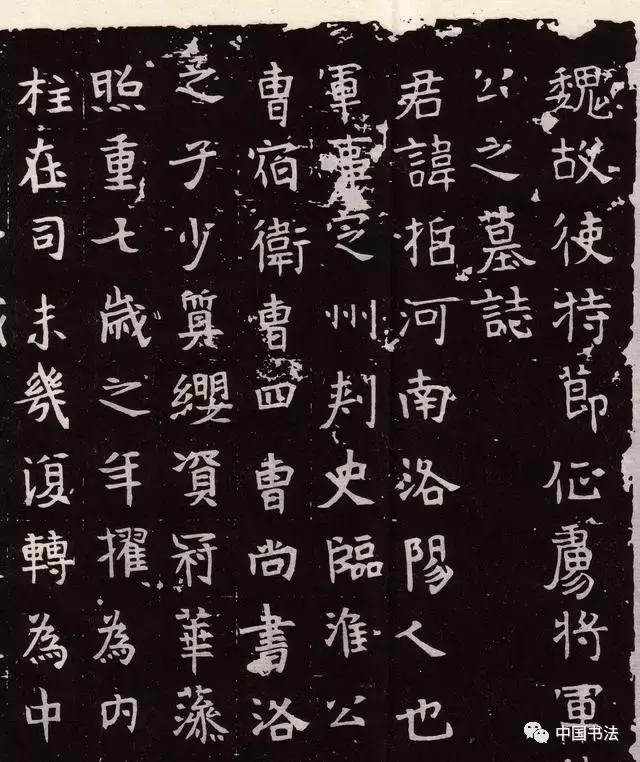 魏故使持節征虜將軍
公之墓誌
君諱哲河南洛陽人也
軍事定州刾史臨淮公
曹宿衛曹四曹尚書洛
之子少算纓資冠華藻
照重七歲之年擢為内
柱在司未幾復轉為中
中国书法